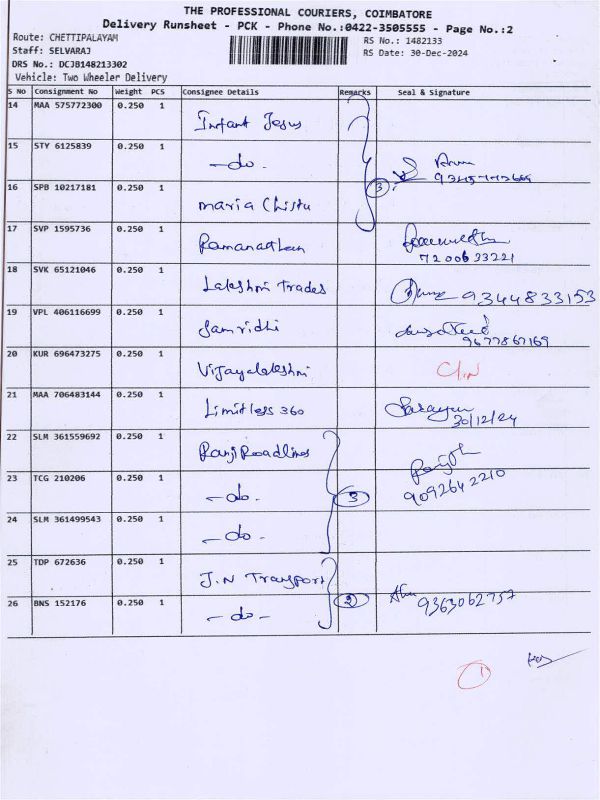 THE PROFESSIONAL COURIERS, COIMBATORE
Delivery Runsheet - PCK - Phone No.:0422-3505555 - Page No.:2
Route: CHETTIPALAYAM RS No.: 1482133
Staff: SELVARAJ RS Date: 30-Dec-2024
DRS No.: DCJB148213302
Vehicle: Two Wheeler Delivery
S No Consignment No Weight PCS Consignee Details Remarks Seal & Signature
14 MAA 575772300 0.250 1 Infant Jesus
15 STY 6125839 0.250 1 -do-
16 SPB 10217181 0.250 1 maria Christu 3
17 SVP 1595736 0.250 1 Ramanathan
7200633221
18 SVK 65121046 0.250 1 Lakshmi Trades 9344833153
19 VPL 406116699 0.250 1 Samridhi
9677867169
20 KUR 696473275 0.250 1 Vijayalakshmi C/N
21 MAA 706483144 0.250 1 Limitless 360
30/12/24
22 SLM 361559692 0.250 1 Ranji Roadlines
23 TCG 210206 0.250 1 -do- 3 9092642210
24 SLM 361499543 0.250 1 -do-
25 TDP 672636 0.250 1 J.N Transport
26 BNS 152176 0.250 1 -do- 2 9363062757
1